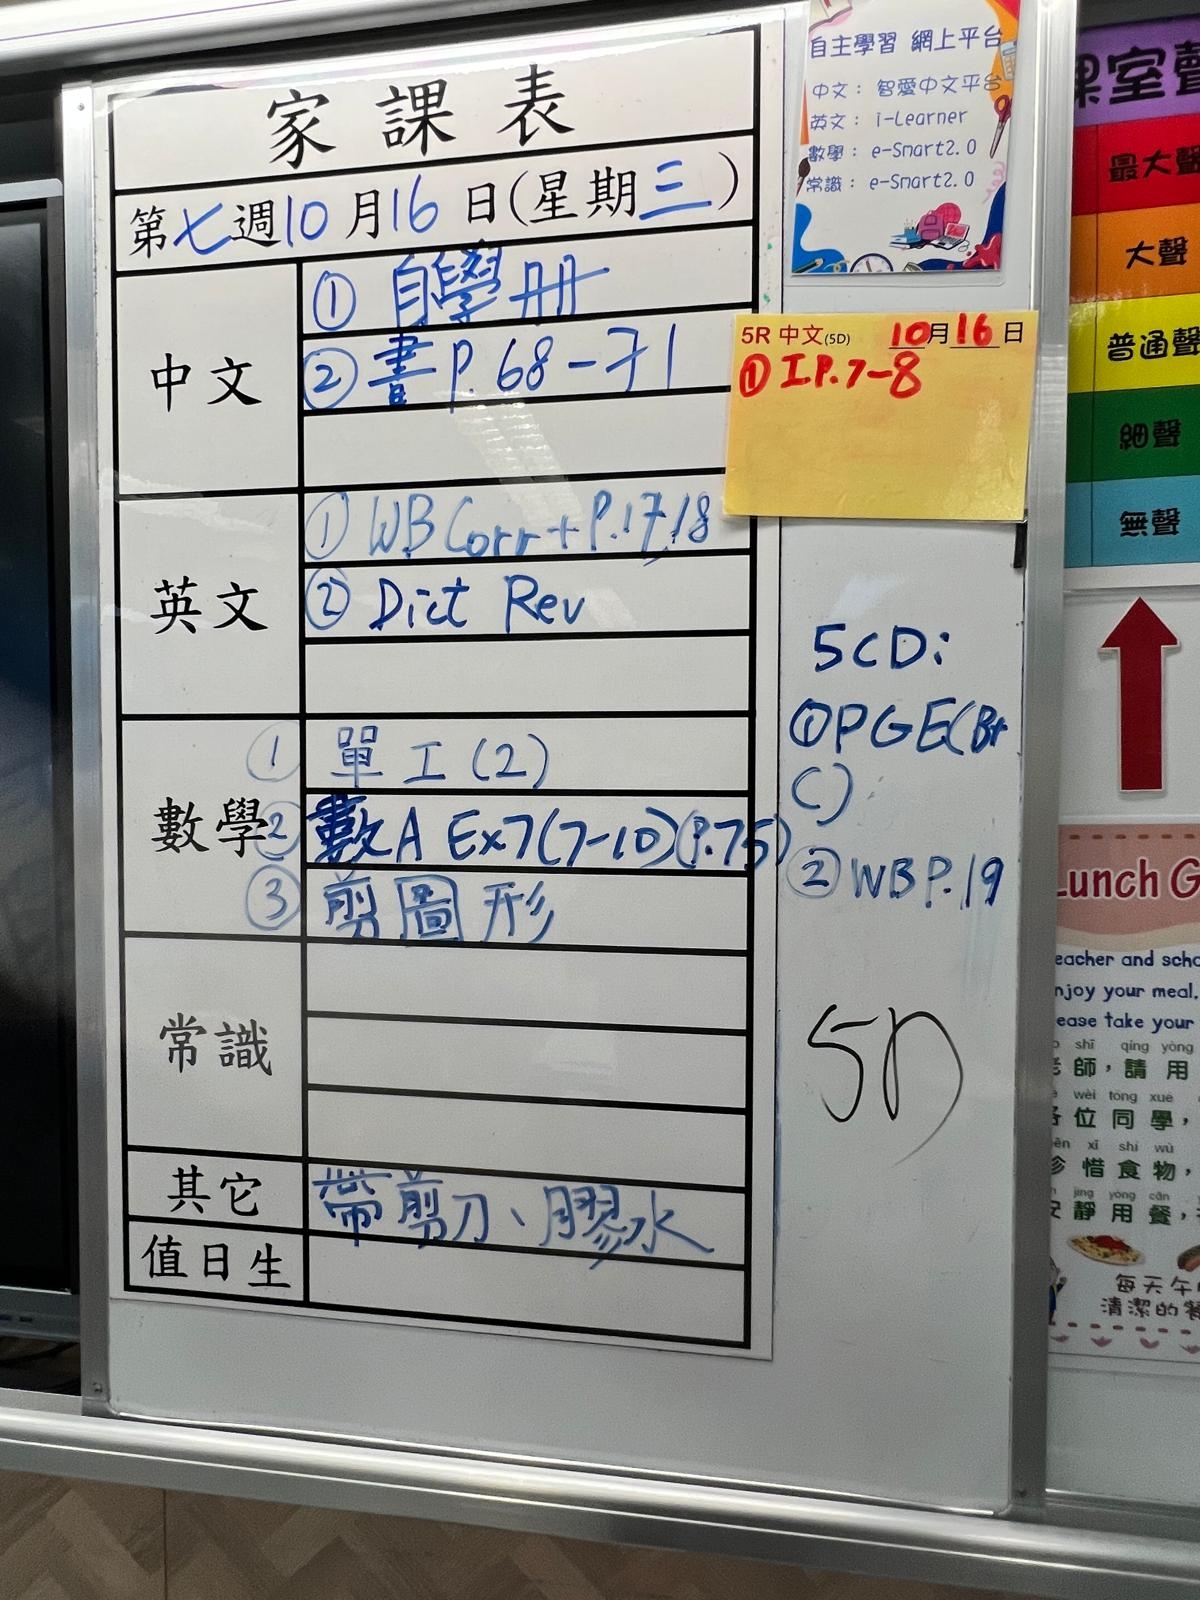 家課表
第七週10月16日(星期三)
中文
① 自學冊
② 書P.68-71
英文
① WB Corr + P.17,18
② Dict Rev
數學
① 單工(2)
② 數A Ex7(7-10)(P.75)
③ 剪圖形
常識
其它
帶剪刀、膠水
值日生
自主學習 網上平台
中文: 智愛中文平台
英文: i-Learner
數學: e-Smart2.0
常識: e-Smart2.0
5R 中文(5D) 10月16日
① I P.7-8
5CD:
① PGE(Br
C)
② WB P.19
5D
課室聲
最大聲
大聲
普通聲
細聲
無聲
Lunch G
eacher and scho
njoy your meal.
ease take your
shī qǐng yòng
老師,請用
wèi tóng xué
各位同學,
xī shí wù
珍惜食物,
jìng yòng cān
安靜用餐,
每天午
清潔的餐